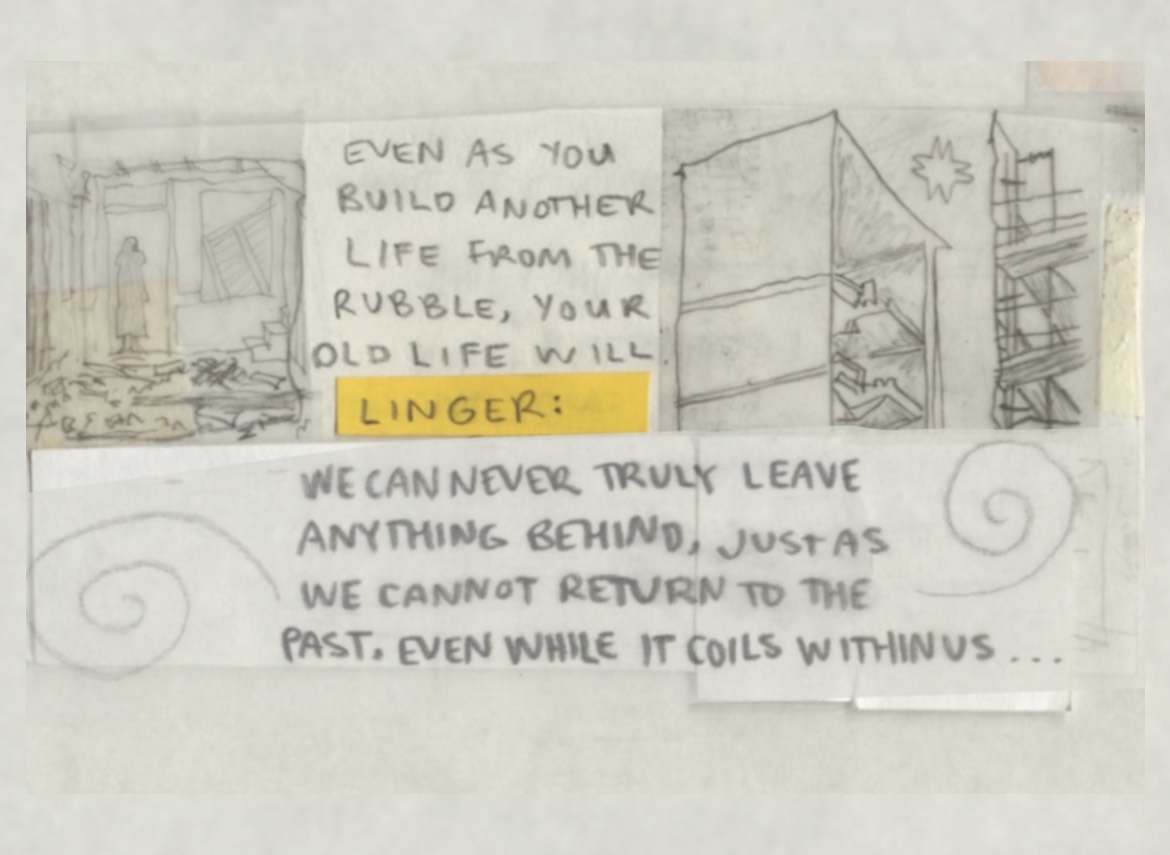 EVEN AS YOU
BUILD ANOTHER
LIFE FROM THE
RUBBLE, YOUR
OLD LIFE WILL
LINGER:
WE CAN NEVER TRULY LEAVE
ANYTHING BEHIND, JUST AS
WE CANNOT RETURN TO THE
PAST. EVEN WHILE IT COILS WITHIN US ...